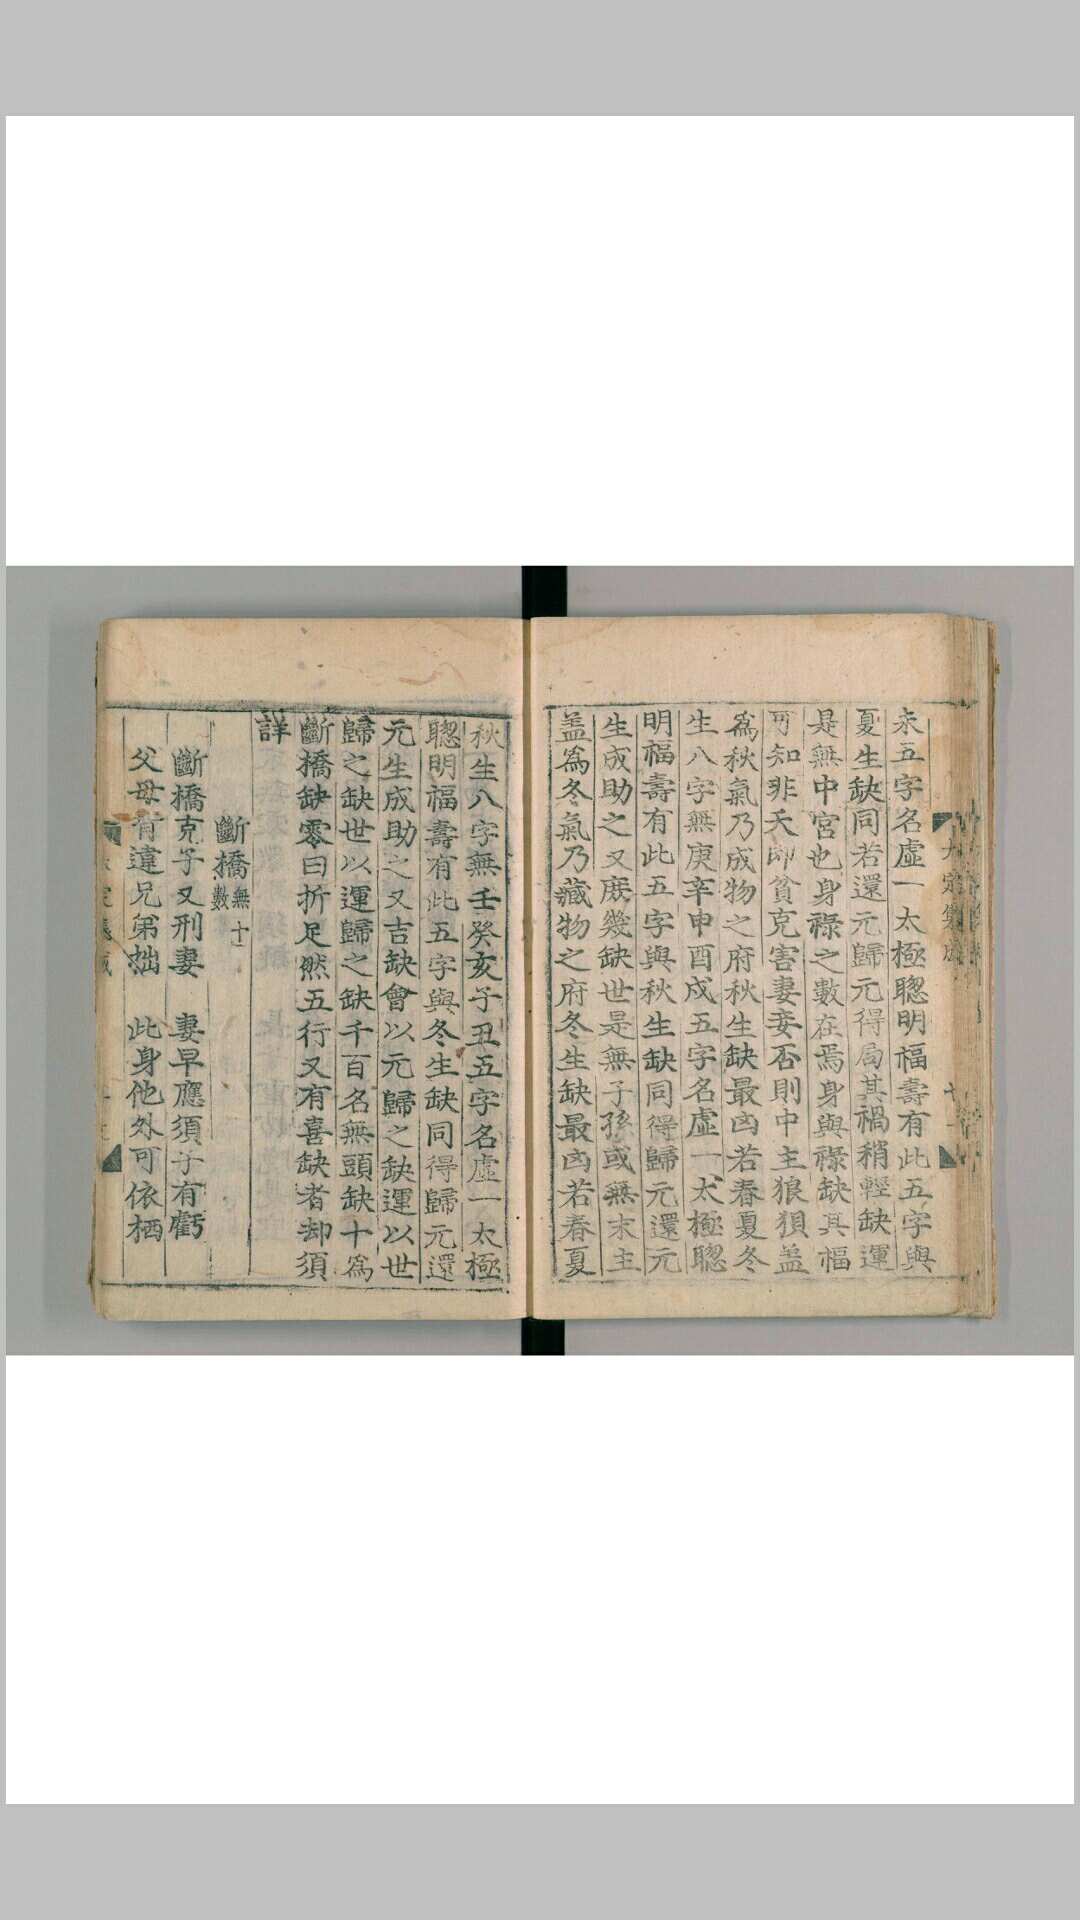 未五字名虛一太極聦明福壽有此五字與
夏生缺同若還元歸元得局其禍稍輕缺運
是無中宮也身祿之數在焉身與祿缺其福
可知非夭即貧克害妻妾否則中主狼狽盖
爲秋氣乃成物之府秋生缺最凶若春夏冬
生八字無庚辛申酉戌五字名虛一太極聦
明福壽有此五字與秋生缺同得歸元還元
生成助之又庶幾缺世是無子孫或無末主
盖爲冬氣乃藏物之府冬生缺最凶若春夏
秋生八字無壬癸亥子丑五字名虛一太極
聦明福壽有此五字與冬生缺同得歸元還
元生成助之又吉缺會以元歸之缺運以世
歸之缺世以運歸之缺千百名無頭缺十爲
斷橋缺零曰折足然五行又有喜缺者却須
詳
斷橋 無十數
斷橋克子又刑妻 妻早應須子有虧
父母有違兄弟拙 此身他外可依栖